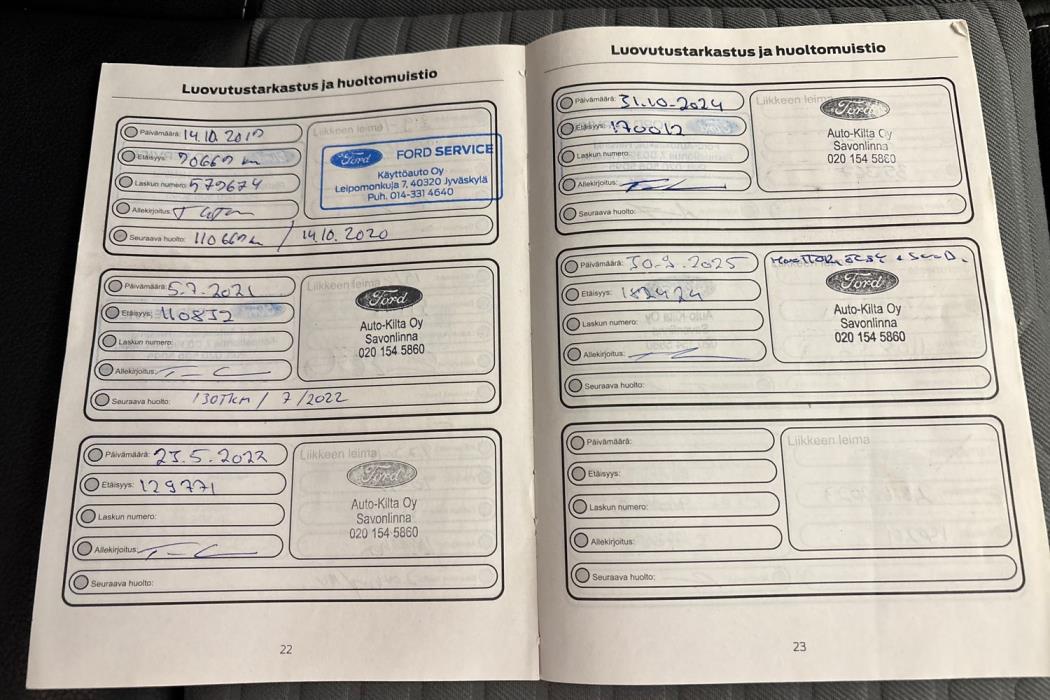 Luovutustarkastus ja huoltomuistio
Päivämäärä: 14.10.2019
Etäisyys: 90669 km
Laskun numero: 579674
Allekirjoitus:
Seuraava huolto: 110669km / 14.10.2020
Liikkeen leima
Ford FORD SERVICE
Käyttöauto Oy
Leipomonkuja 7, 40320 Jyväskylä
Puh. 014-331 4640
Päivämäärä: 5.7.2021
Etäisyys: 110852
Laskun numero:
Allekirjoitus:
Seuraava huolto: 130Tkm / 7/2022
Liikkeen leima
Ford
Auto-Kilta Oy
Savonlinna
020 154 5860
Päivämäärä: 23.5.2022
Etäisyys: 129771
Laskun numero:
Allekirjoitus:
Seuraava huolto:
Liikkeen leima
Ford
Auto-Kilta Oy
Savonlinna
020 154 5860
22
Luovutustarkastus ja huoltomuistio
Päivämäärä: 31.10.2024
Etäisyys: 170012
Laskun numero:
Allekirjoitus:
Seuraava huolto:
Liikkeen leima
Ford
Auto-Kilta Oy
Savonlinna
020 154 5860
Päivämäärä: 30.9.2025
Etäisyys: 182424
Laskun numero:
Allekirjoitus:
Seuraava huolto:
Ford
Auto-Kilta Oy
Savonlinna
020 154 5860
Päivämäärä:
Etäisyys:
Laskun numero:
Allekirjoitus:
Seuraava huolto:
Liikkeen leima
23